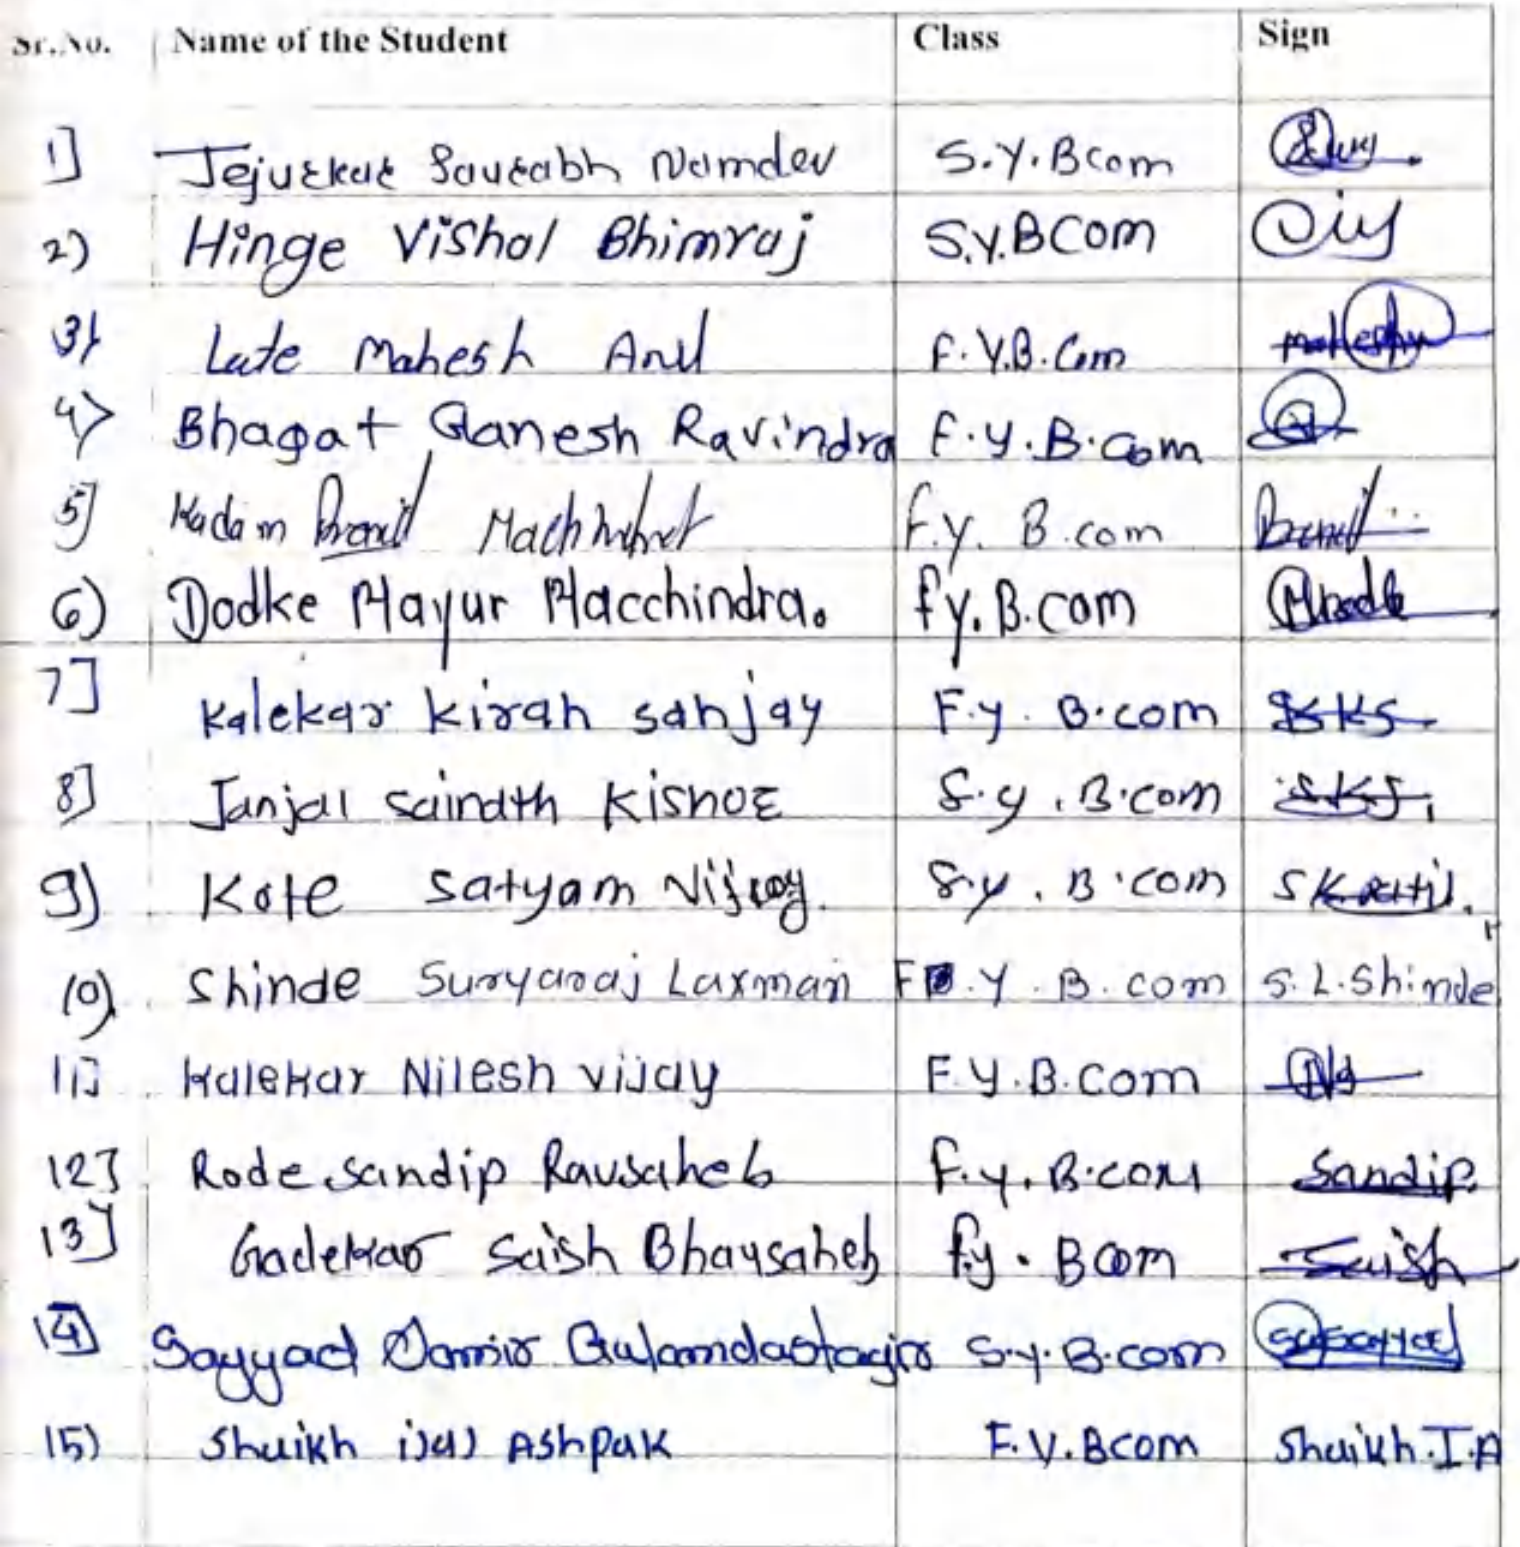 Sr.No. Name of the Student Class Sign
1] Jejurkar Saurabh Namdev S.Y.Bcom
2) Hinge Vishal Bhimraj S.Y.BCom
3) Late Mahesh Anil F.Y.B.Com
4) Bhagat Ganesh Ravindra F.Y.B.Com
5] Kadam F.Y. B.com
6) Dodke Mayur Macchindra. fy.B.com
7] Kalekar kiran sanjay F.y. B.com SKS
8] Janjal sainath Kishor S.y. B.com
9) Kote Satyam Vijay. S.y. B.com
10) Shinde Suryaraj Laxman F.Y.B.com S.L.Shinde
11] Kalekar Nilesh vijay F.Y.B.Com
12] Rode sandip Rausaheb F.y.B.com Sandip
13] Gadekar Saish Bhaysaheb f.y.Bcom Saish
14] Sayyad Samir Gulamdastagir S.y.B.com
15) Shaikh ijaj Ashpak F.Y.Bcom Shaikh.I.A